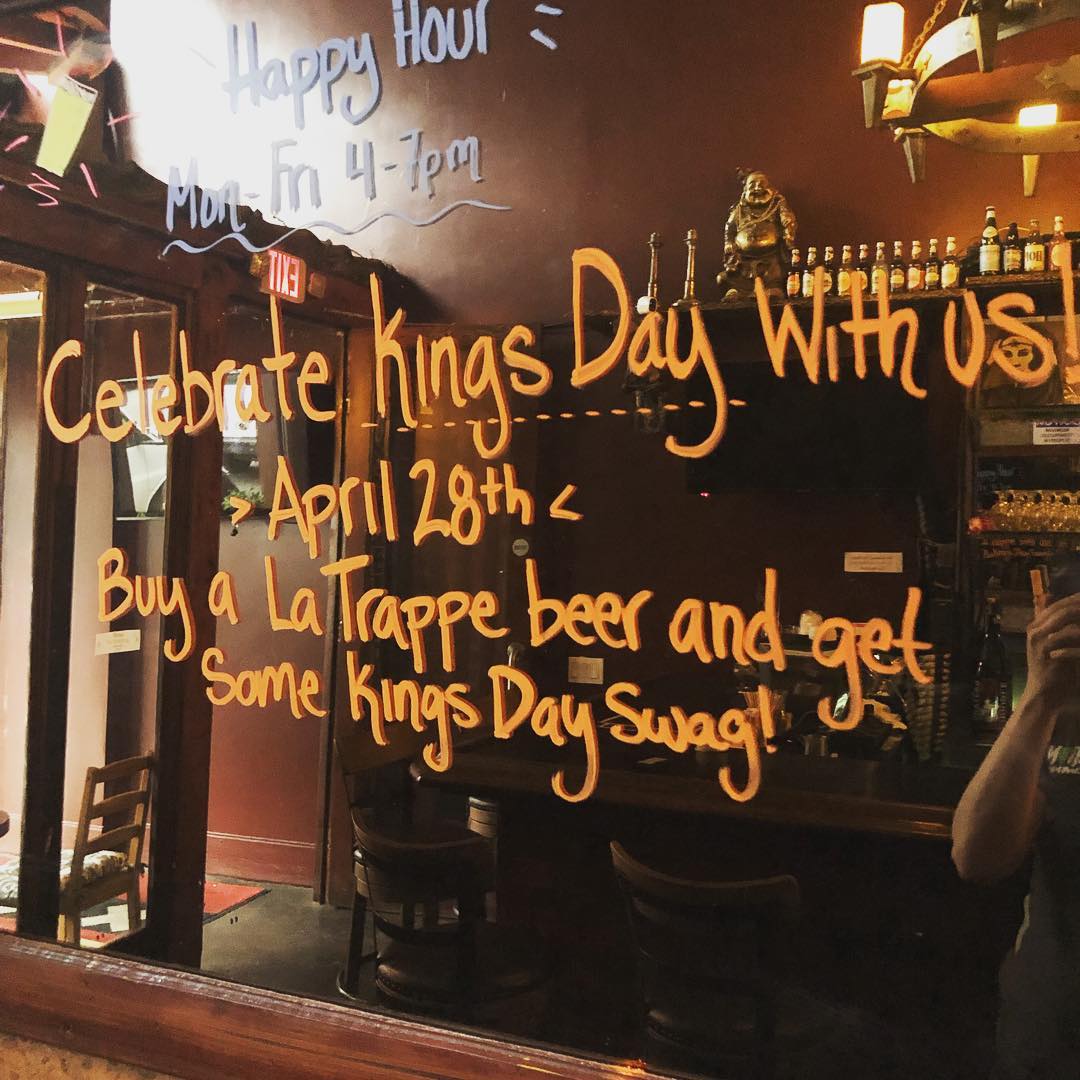 Happy Hour
Mon-Fri 4-7pm
EXIT
Celebrate Kings Day With us!
> April 28th <
Buy a La Trappe beer and get
Some Kings Day Swag!